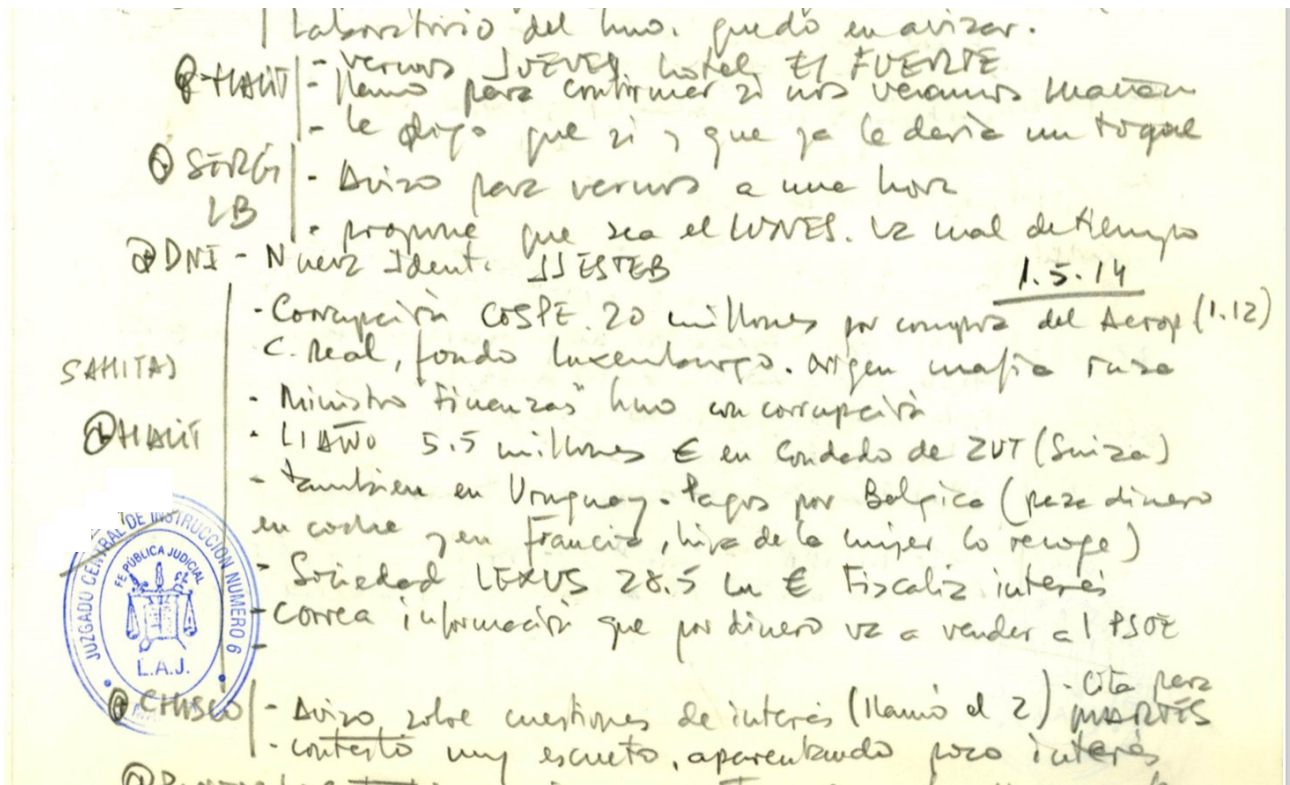 Laboratorio del hno. quedó en avisar.
- vernos JUEVES hotel El FUERTE
- llamó para confirmar si nos veramos mañan
- le digo que si y que ya le daría un toque
SERGI
LB
- Aviso para vernos a una hora
- propone que sea el LUNES. Va mal de tiempo
DNI - Nueva Ident. JJ ESTEB
1.5.14
- Corrupción COSPE. 20 millones por compra del Aerop (1.12)
C. Real, fondo Luxemburgo. origen mafia rusa
SANITAS
- Ministro "Finanzas" hno con corrupción
- LIAÑO 5.5 millones € en Condado de ZUT (Suiza)
- también en Uruguay. Pagos por Bélgica (pasa dinero
en coche y en Francia, hija de la mujer lo recoge)
- Sociedad LEXUS 28.5 € Fiscaliz interés
- Correa información que por dinero va a vender al PSOE
-
JUZGADO CENTRAL DE INSTRUCCIÓN NUMERO 6
FE PÚBLICA JUDICIAL
L.A.J.
CHISCO
- Aviso sobre cuestiones de interés (llamó el 2) - Cita para
MARTES
- contestó muy escueto, aparentando poco interés